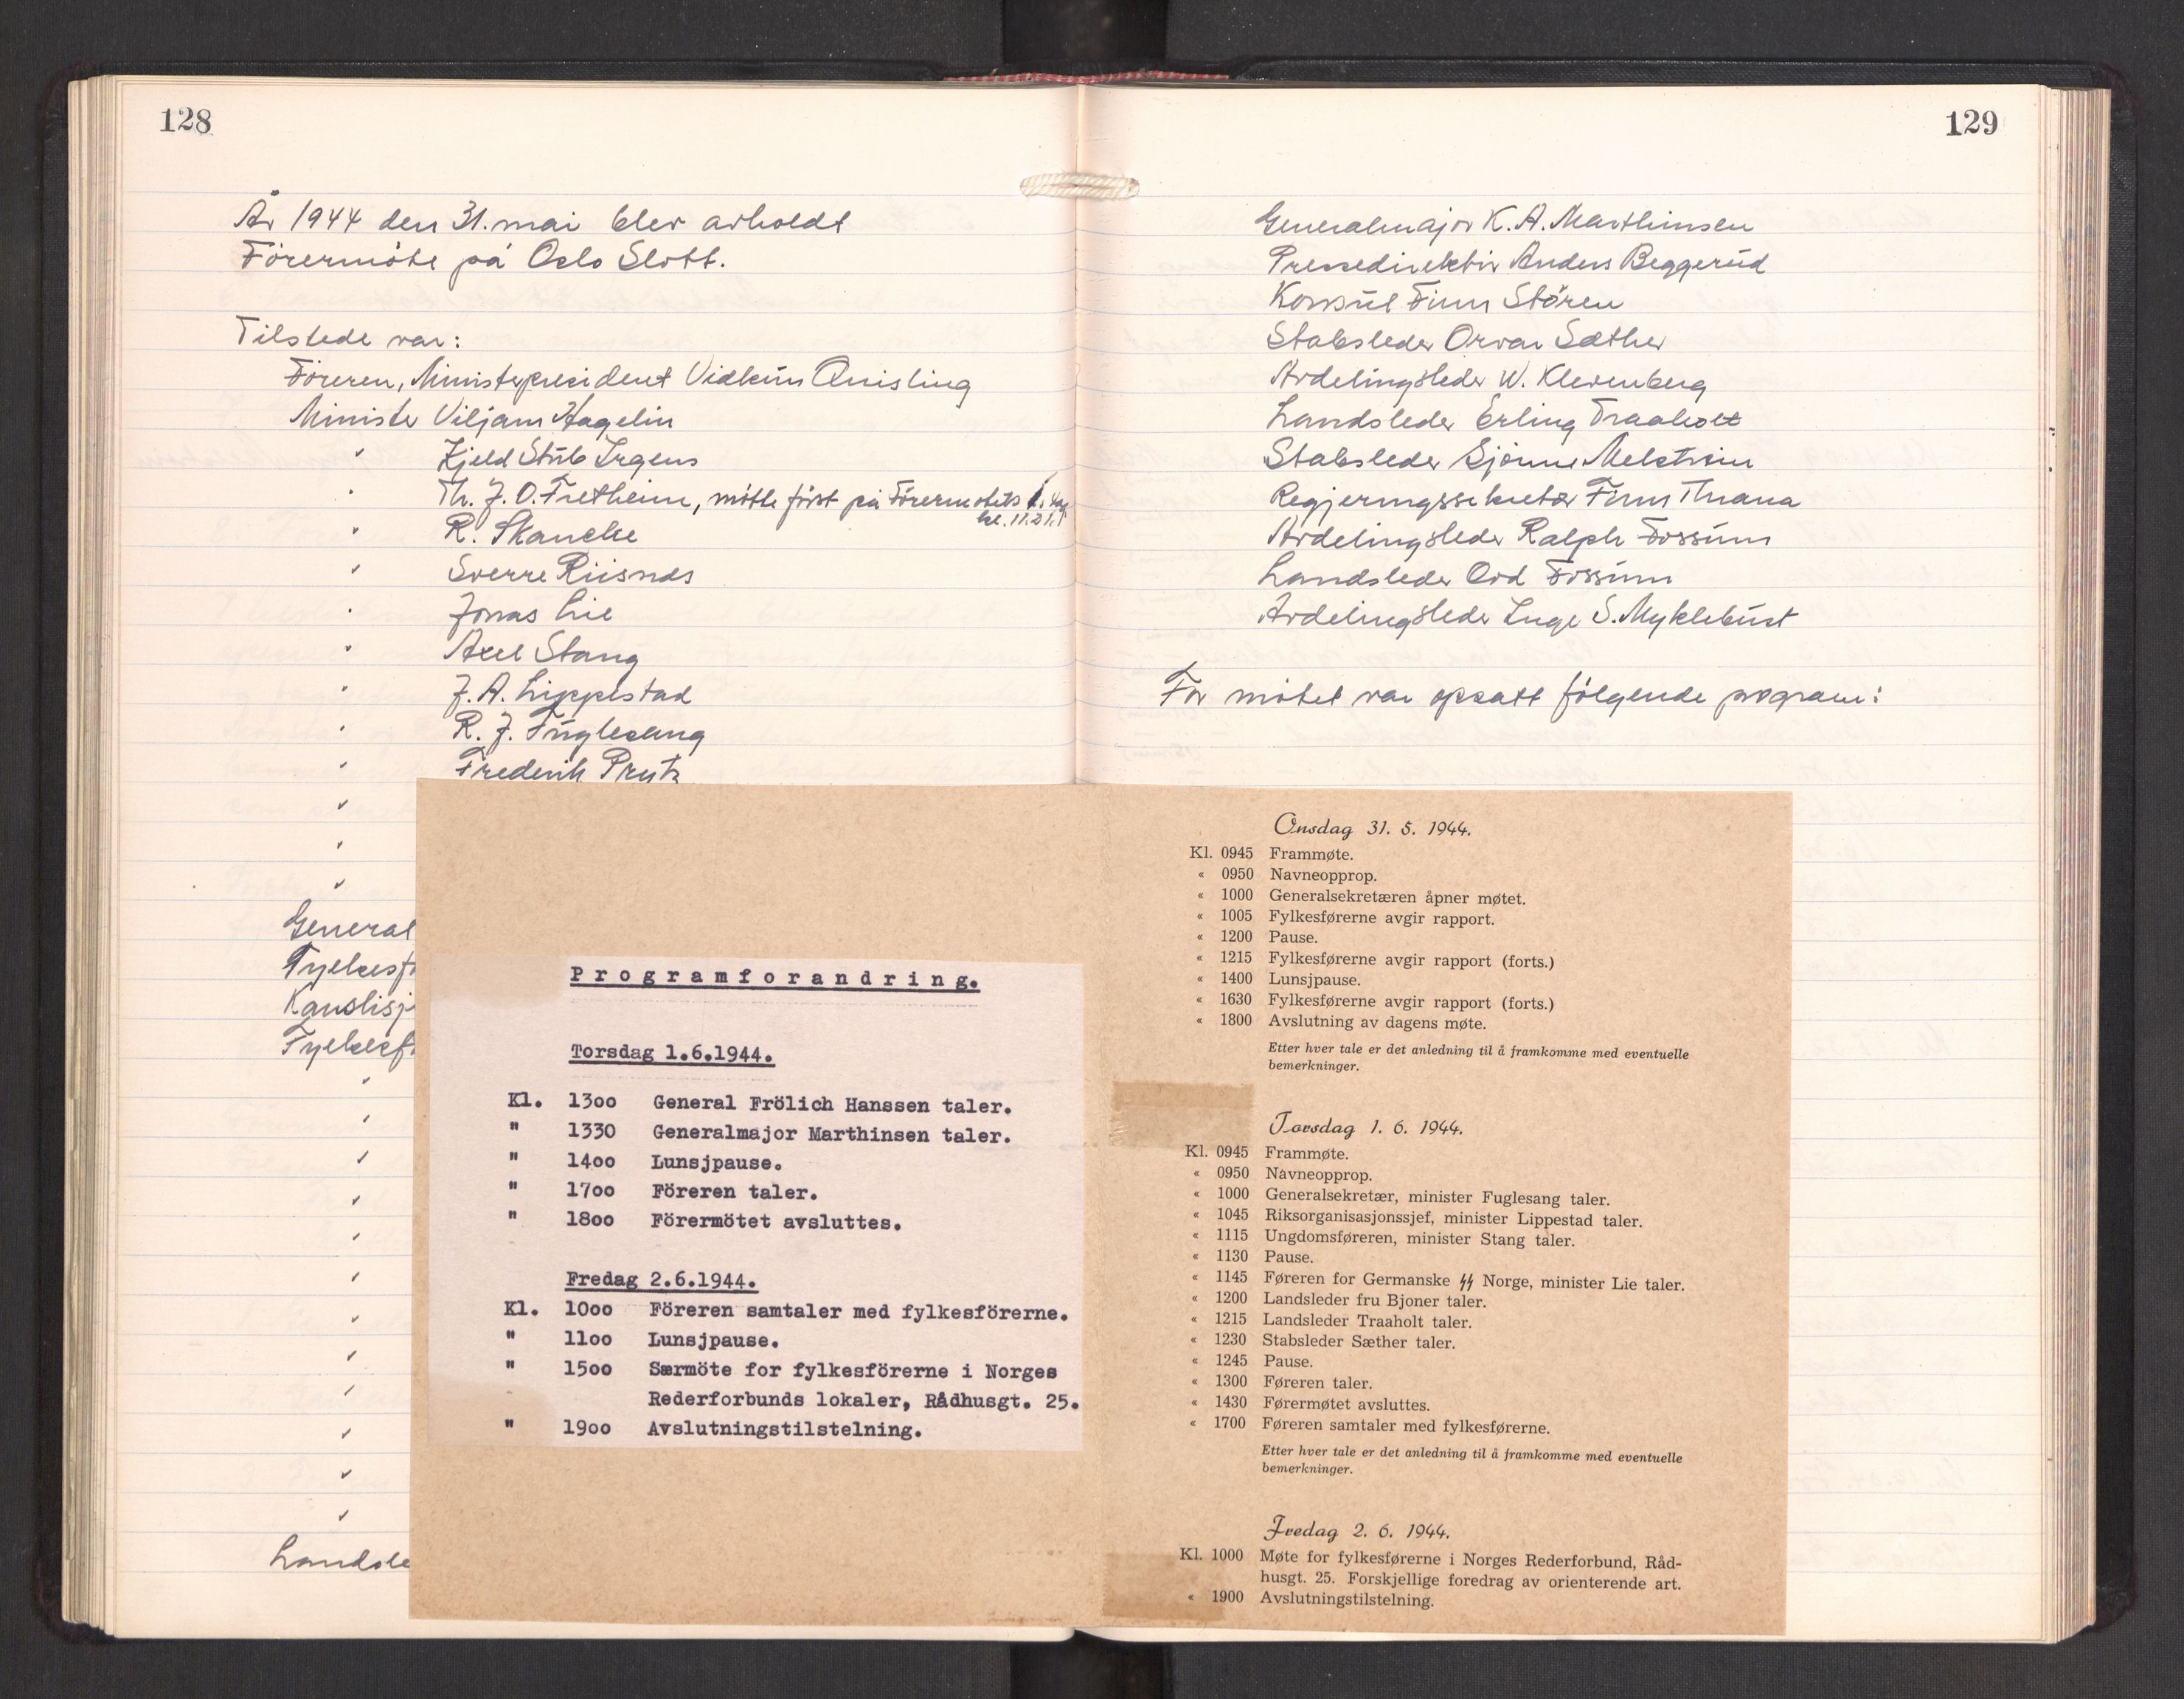 128
År 1944 den 31. mai blev avholdt
Förermöte på Oslo Slott.
Tilstede var:
Föreren, Ministerpresident Vidkun Quisling
Minister Viljam Hagelin
" Kjeld Stub Irgens
" Th. J. O. Fretheim, mötte först på Förermötets 1. dag
kl. 11.21.
" R. Skancke
" Sverre Riisnæs
" Jonas Lie
" Axel Stang
" J. A. Lippestad
" R. J. Fuglesang
" Frederik Prytz
"
"
"
General
Fylkesfø
Kanslisj
Fylkesf
"
"
"
"
"
"
"
"
"
"
"
"
Landsle
Programforandring.
Torsdag 1.6.1944.
Kl. 13oo General Frölich Hanssen taler.
" 1330 Generalmajor Marthinsen taler.
" 14oo Lunsjpause.
" 17oo Föreren taler.
" 18oo Förermötet avsluttes.
Fredag 2.6.1944.
Kl. 10oo Föreren samtaler med fylkesförerne.
" 11oo Lunsjpause.
" 15oo Særmöte for fylkesförerne i Norges
Rederforbunds lokaler, Rådhusgt. 25.
" 19oo Avslutningstilstelning.
129
Generalmajor K. A. Marthinsen
Pressedirektör Anders Beggerud
Konsul Finn Stören
Stabsleder Orvar Sæther
Avdelingsleder W. Klevenberg
Landsleder Erling Traaholt
Stabsleder Bjönne Melström
Regjeringssekretær Finn Thrana
Avdelingsleder Ralph Fossum
Landsleder Odd Fossum
Avdelingsleder Inge S. Myklebust
For mötet var opsatt fölgende program:
Onsdag 31. 5. 1944.
Kl. 0945 Frammøte.
« 0950 Navneopprop.
« 1000 Generalsekretæren åpner møtet.
« 1005 Fylkesførerne avgir rapport.
« 1200 Pause.
« 1215 Fylkesførerne avgir rapport (forts.)
« 1400 Lunsjpause.
« 1630 Fylkesførerne avgir rapport (forts.)
« 1800 Avslutning av dagens møte.
Etter hver tale er det anledning til å framkomme med eventuelle
bemerkninger.
Torsdag 1. 6. 1944.
Kl. 0945 Frammøte.
« 0950 Navneopprop.
« 1000 Generalsekretær, minister Fuglesang taler.
« 1045 Riksorganisasjonssjef, minister Lippestad taler.
« 1115 Ungdomsføreren, minister Stang taler.
« 1130 Pause.
« 1145 Føreren for Germanske ᛋᛋ Norge, minister Lie taler.
« 1200 Landsleder fru Bjoner taler.
« 1215 Landsleder Traaholt taler.
« 1230 Stabsleder Sæther taler.
« 1245 Pause.
« 1300 Føreren taler.
« 1430 Førermøtet avsluttes.
« 1700 Føreren samtaler med fylkesførerne.
Etter hver tale er det anledning til å framkomme med eventuelle
bemerkninger.
Fredag 2. 6. 1944.
Kl. 1000 Møte for fylkesførerne i Norges Rederforbund, Råd-
husgt. 25. Forskjellige foredrag av orienterende art.
« 1900 Avslutningstilstelning.